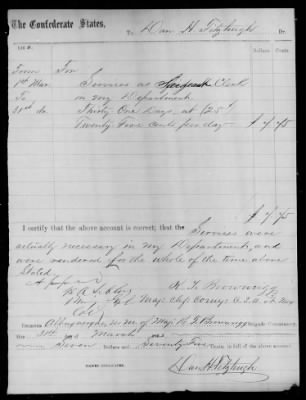 The Confederate States,
To Dan H. Fitzhugh Dr.
Dollars Cents
From For
1st Mar Services as Clerk
To in my Department
31st do. Thirty One Days, at (25¢)
Twenty Five cents per day — $ 7.75
$ 7.75
I certify that the above account is correct; that the Services were
actually necessary in my Department, and
were rendered for the whole of the time above
Stated.
H. L. Brownrigg
Maj. & Chf. Comsy C.S.A.
of Maj. H. L. Brownrigg Brigade Commissary,
this 31st day of March
Seven Dollars and Seventy Five Cents, in full of the above account.
Dan H. Fitzhugh